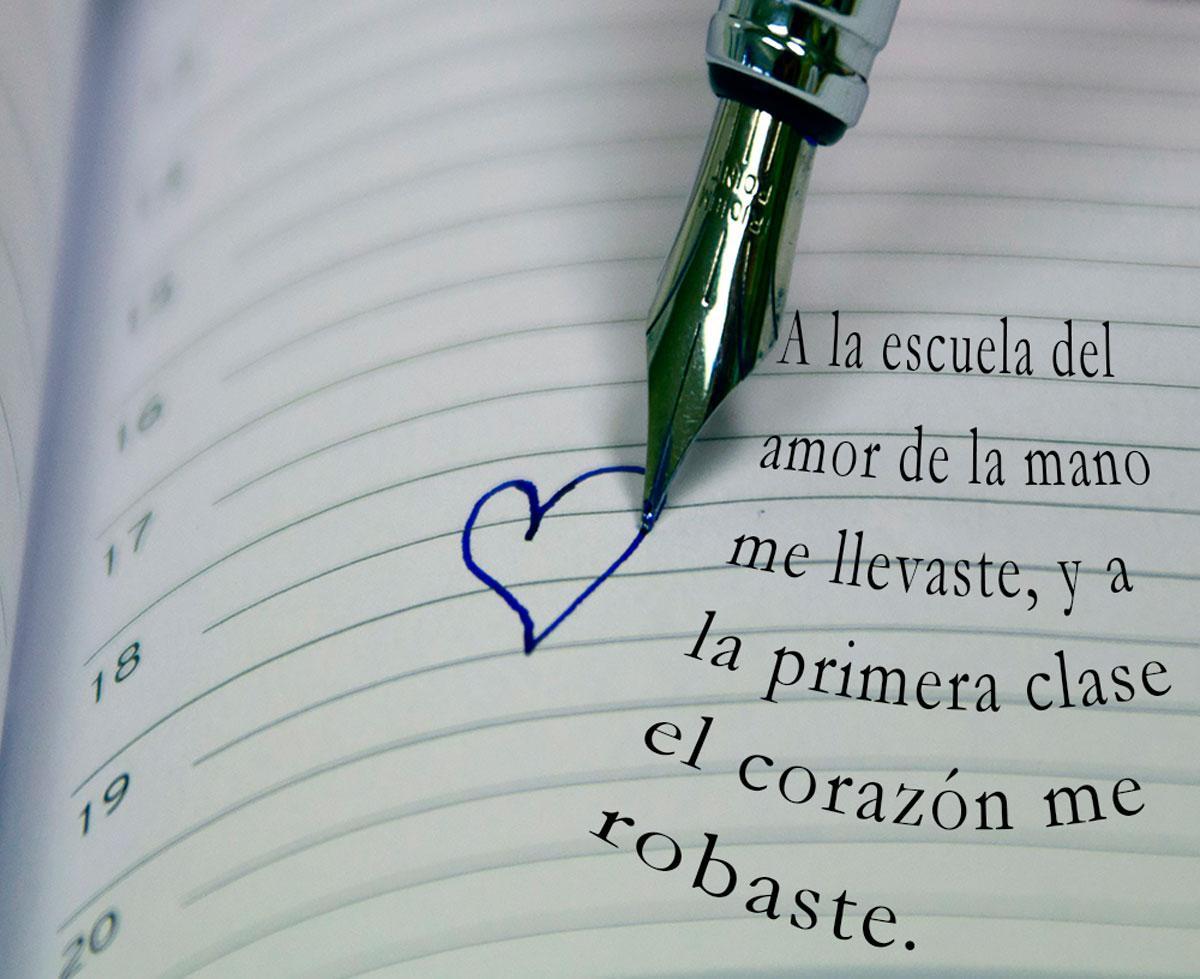 16
17
18
19
20
A la escuela del
amor de la mano
me llevaste, y a
la primera clase
el corazón me
robaste.